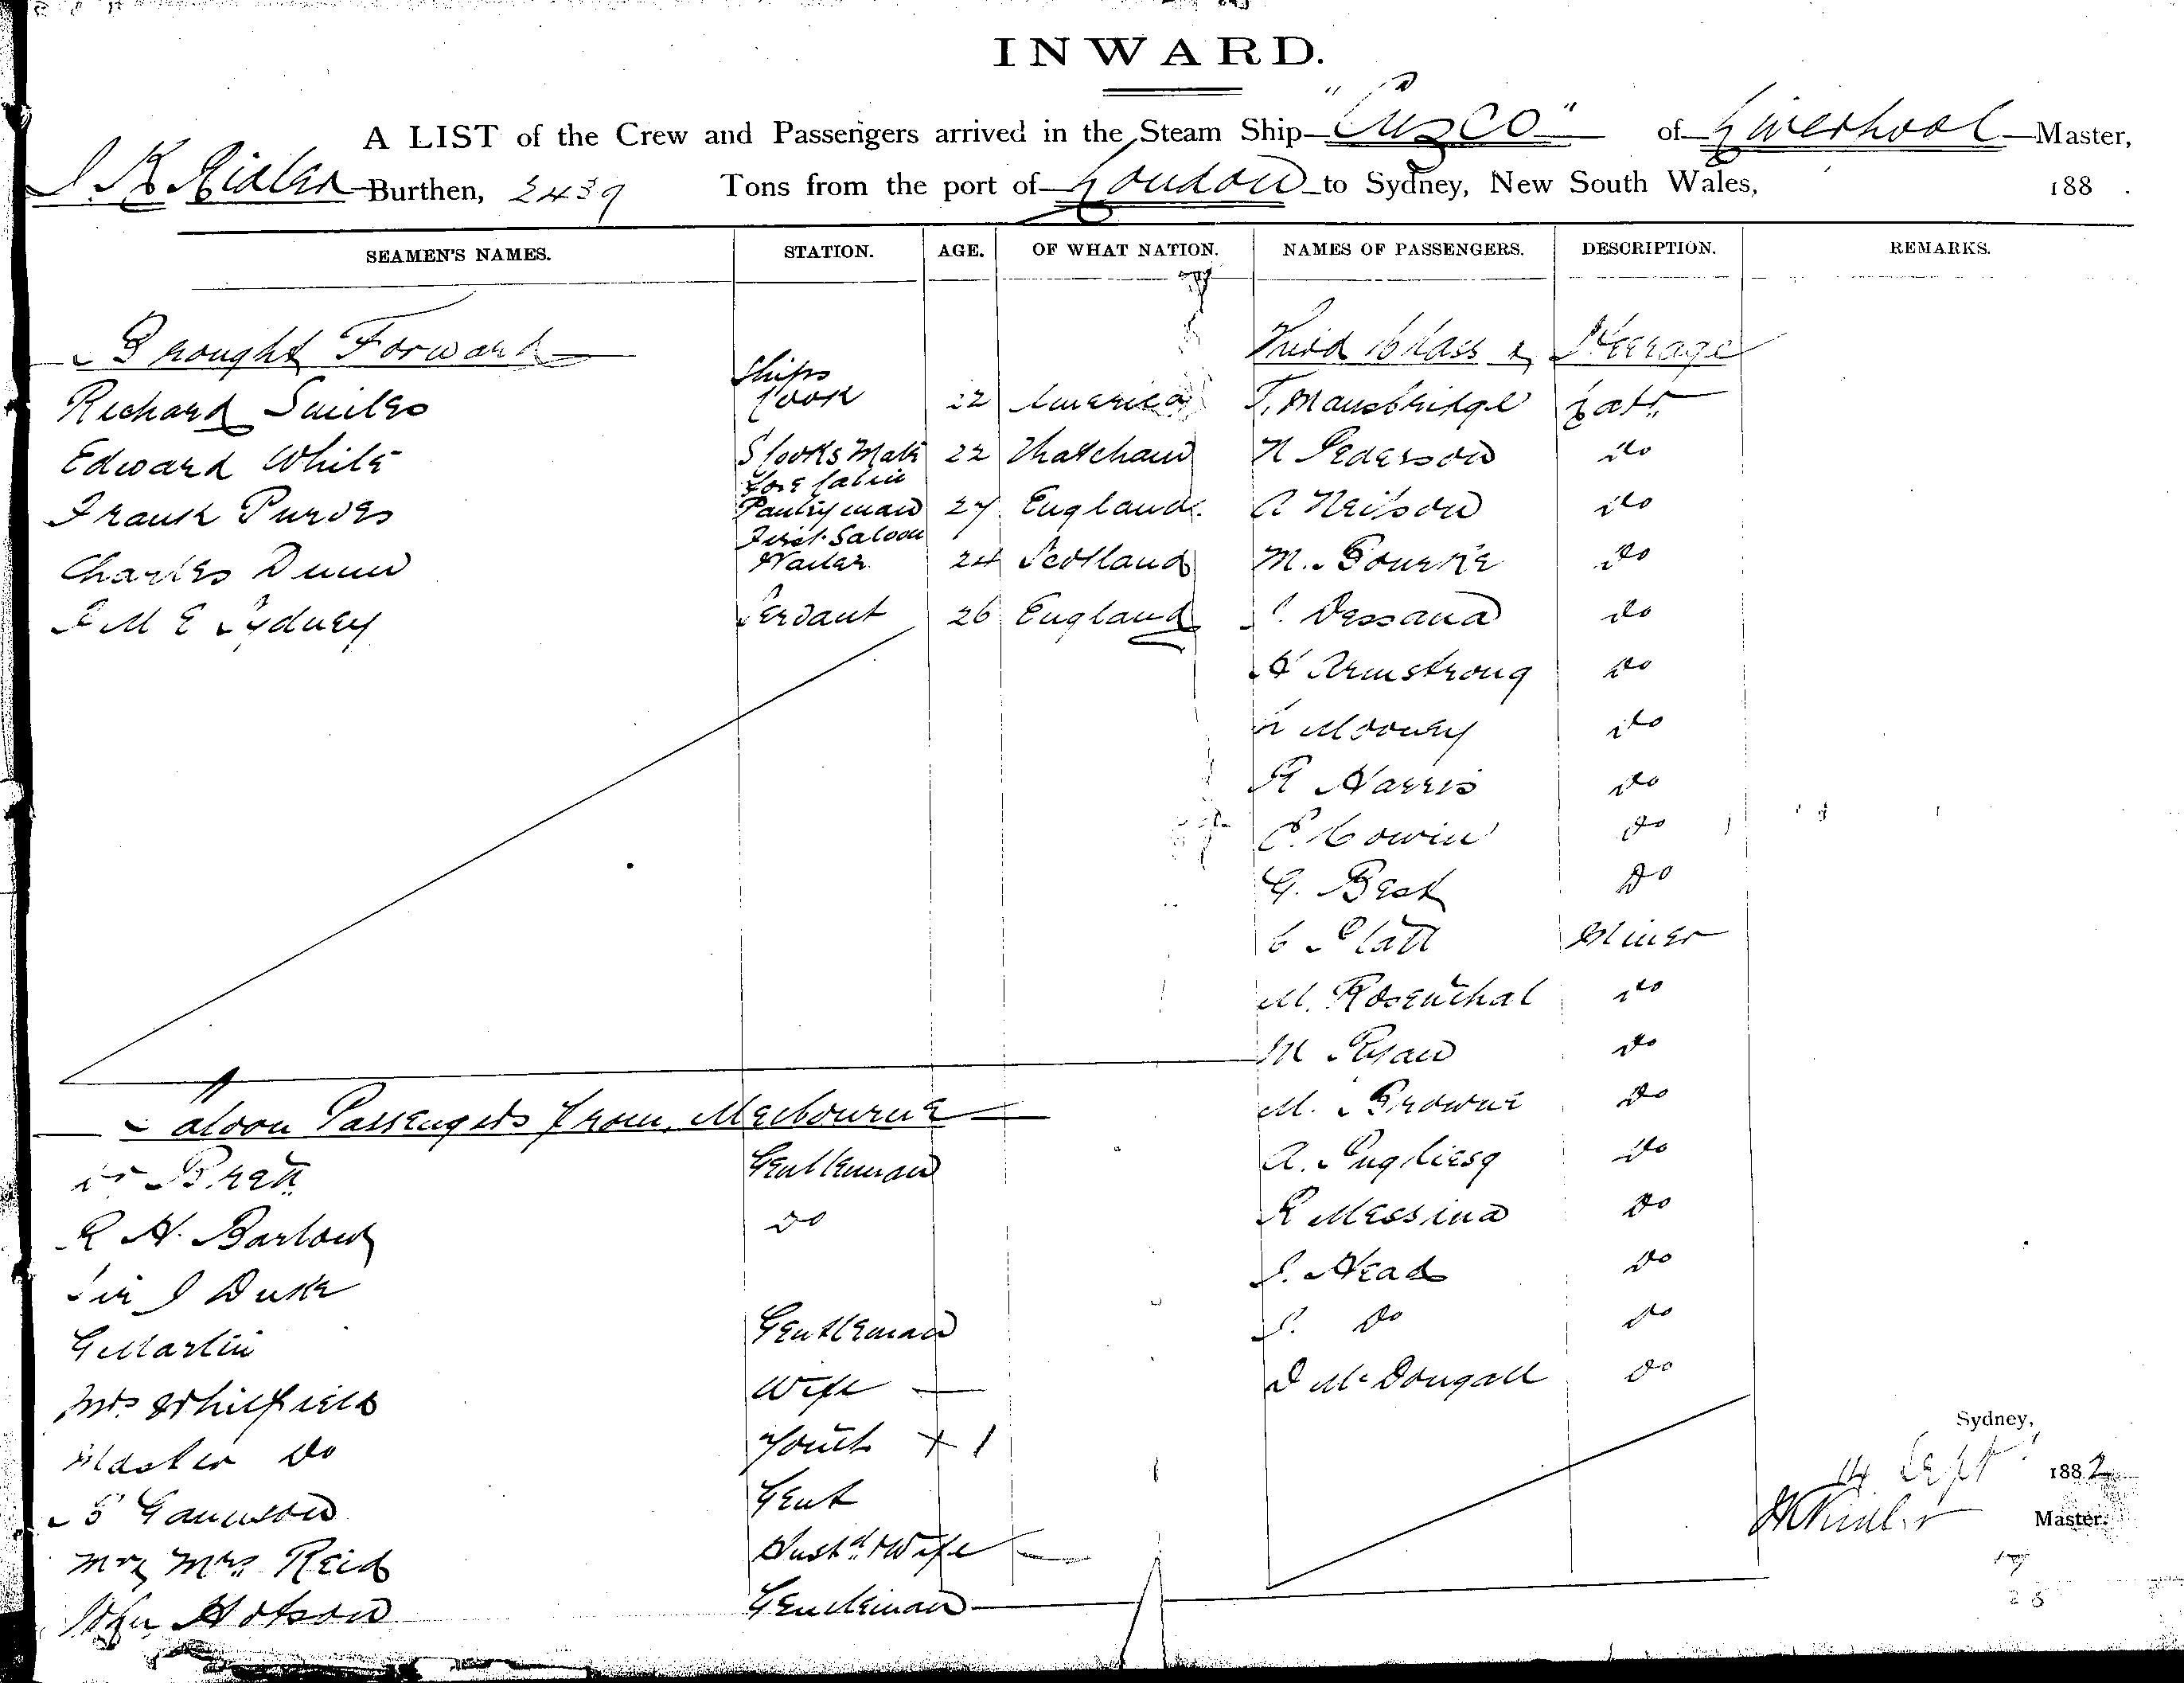 INWARD.
A LIST of the Crew and Passengers arrived in the Steam Ship "Cuzco" of Liverpool Master,
Burthen, 2439 Tons from the port of London to Sydney, New South Wales, 188 .
SEAMEN'S NAMES. STATION. AGE. OF WHAT NATION. NAMES OF PASSENGERS. DESCRIPTION. REMARKS.
Brought Forward Third Class & Steerage
Ships
Richard Smiles Cook 22 America T. Mansbridge
Edward White S Cooks Mate 22 N Pederson Do
Fore Cabin
Frank Purves Pantryman 27 England A Neilson Do
First Saloon
Charles Dunn Waiter 24 Scotland M. Bourke Do
E Sydney Servant 26 England Dessana Do
H Armstrong Do
Mooney Do
R Harris Do
C. Cowin Do
G. Best Do
C Platt Miner
M. Rosenthal Do
M Ryan Do
M. Browne Do
Saloon Passengers from Melbourne
Brett Gentleman A. Pugliesy Do
R H. Barlow Do R Messina Do
Sir J Duke J. Head Do
G Martin Gentleman J. Do Do
Mrs Whitfield Wife D McDougall Do
Master Do Youth + 1
Sydney,
S Gannson Gent 14 Sept 1882
Mr & Mrs Reid Husbd & Wife Master.
John Hotson Gentleman